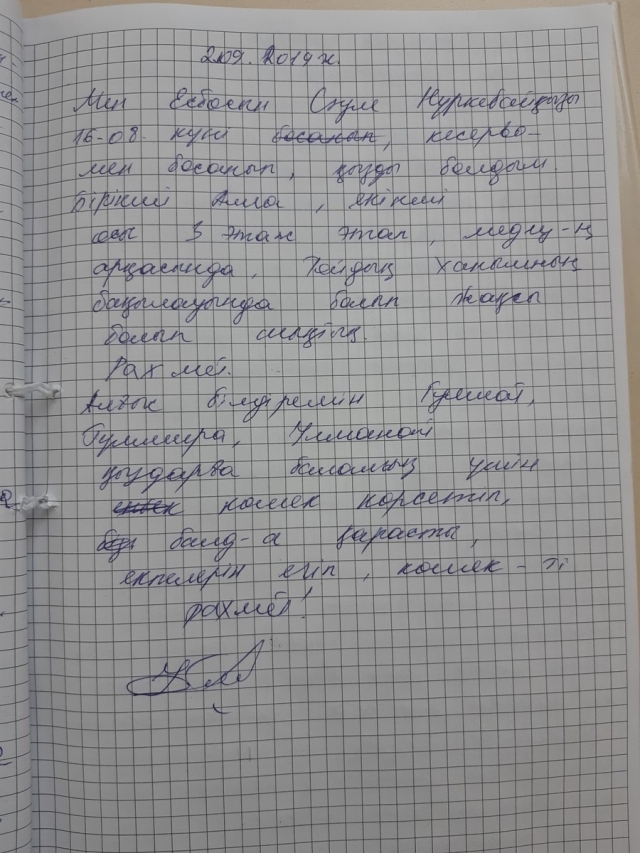 2.09.2019ж.
Мен Есбосын Сәуле Нуркебайқызы
16-08. күні босанып, кесерво-
мен босанып, қызды болдым.
Бірікші Алла, екікші
осы 3 этаж этап, медиц-ң
арқасында, Хойдың Ханымның
бақылауында болып жақсы
болып шықтық.
Рахмет.
Алғыс білдіремін Гүлшат,
Гулмира, Улманай
қыздарға баламың үшін
көмек көрсетіп,
балд-а қарасты,
екпелерін егіп, көмек-ті
рахмет!